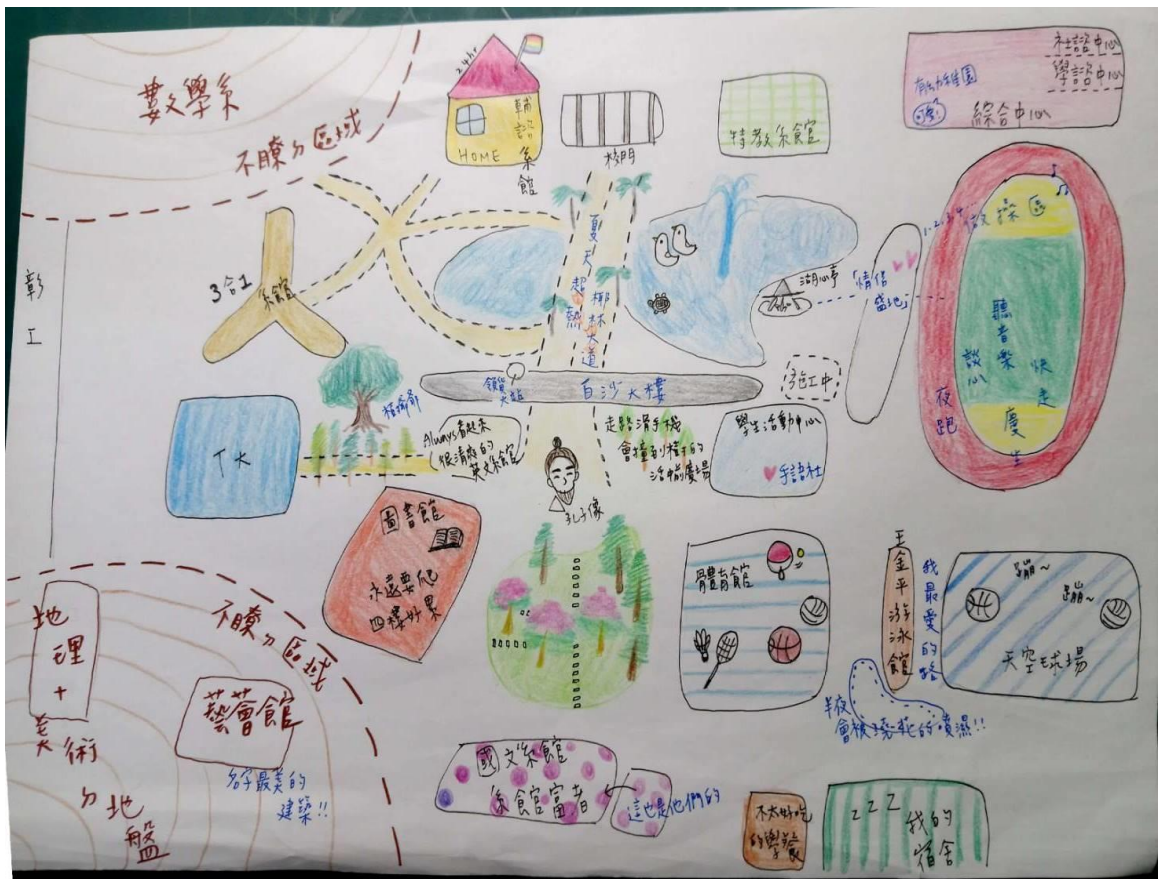 數學系
不瞭ㄉ區域
24hr
HOME
輔諮系館
校門
特教系館
社諮中心
學諮中心
有幼稚園
綜合中心
彰工
3合1
系館
夏天超熱
椰林大道
湖心亭
「情侶
盛地」
1.2.3.4...
做操區
聽音樂
談心
快走
夜跑
慶生
白沙大樓
施工中
榕爺爺
TK
Always看起來
很清爽的
英文系館
走路滑手機
會撞到柱子的
活動廣場
學生活動中心
手語社
孔子像
圖書館
永遠要爬
四樓好累
體育館
王金平游泳館
我最愛的路
蹦~
蹦~
天空球場
半夜
會被澆花的噴濕!!
地理+美術ㄉ地盤
不瞭ㄉ區域
藝薈館
名字最美的
建築!!
國文系館
系館富者
這也是他們的
不太好吃
的學餐
ZZZ
我的
宿舍